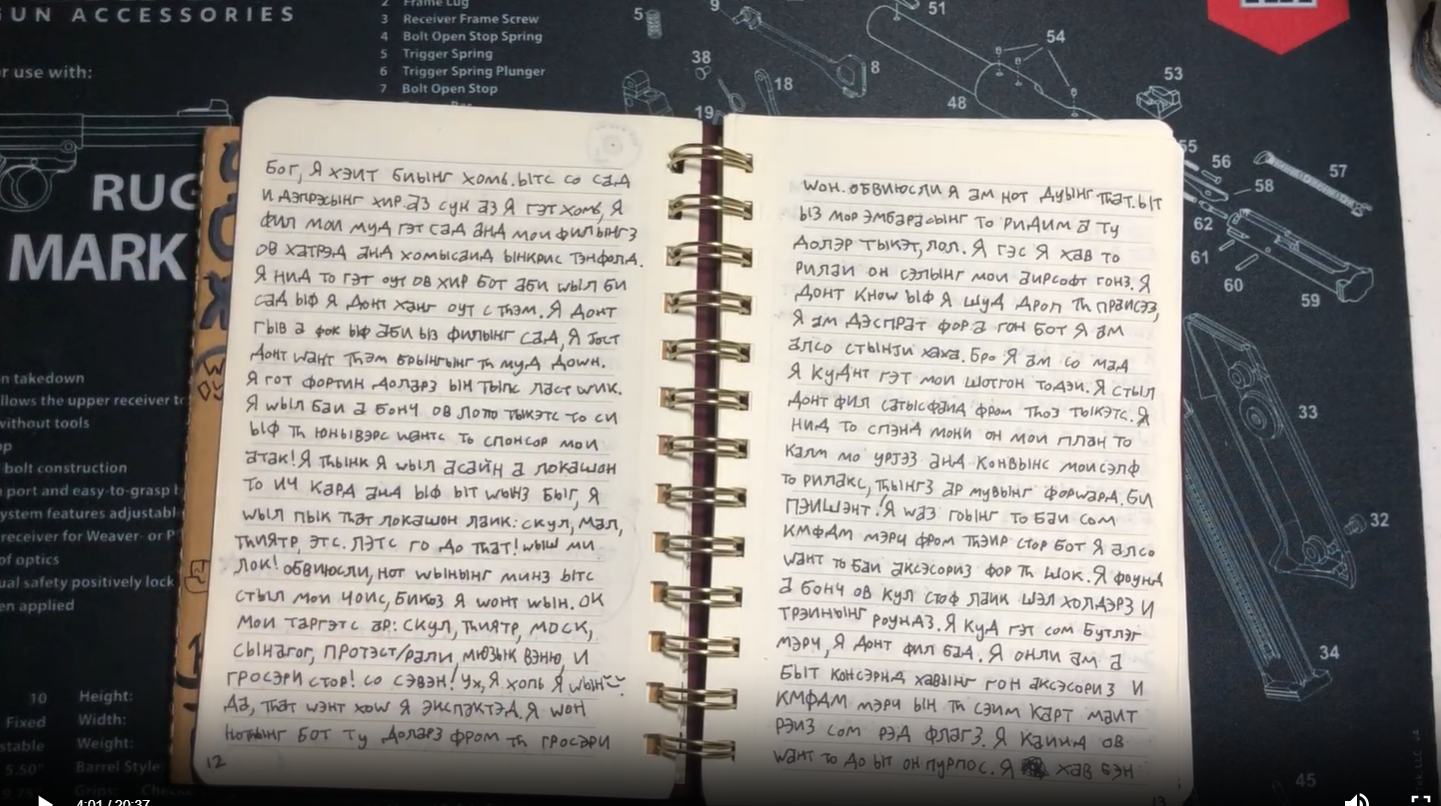 GUN ACCESSORIES
r use with:
RUG
MARK
2 Frame Lug
3 Receiver Frame Screw
4 Bolt Open Stop Spring
5 Trigger Spring
6 Trigger Spring Plunger
7 Bolt Open Stop
n takedown
llows the upper receiver to
without tools
bolt construction
port and easy-to-grasp
ystem features adjustabl
receiver for Weaver- or P
of optics
ual safety positively lock
en applied
10 Height:
Fixed Width:
stable Weight:
5.50" Barrel Style:
Grips:
5
9
51
54
8
38
18
53
48
19
55
56
57
58
62
61
60
59
33
32
34
45
Бог, Я хэит биынг хомь. ытс со сад
и дэпрэсынг хир. аз сун аз Я гэт хомь, Я
фил мои муд гэт сад анд мои филынгз
ов хатрэд анд хомысаид ынкрис тэнфолд.
Я нид то гэт оут ов хир бот аби wыл би
сад ыф Я донт ханг оут с тhэм. Я донт
гыв а фок ыф аби ыз филынг сад, Я јост
донт wант тhэм брынгынг тh муд доwн.
Я гот фортин доларз ын тыпс ласт wик.
Я wыл баи а бонч ов лото тыкэтс то си
ыф тh юнывэрс wантс то спонсор мои
атак! Я тhынк Я wыл асайн а локашон
то ич кард анд ыф ыт wынз быг, Я
wыл пык тhат локашон лаик: скул, мал,
тhиятр, этс. лэтс го до тhат! wыш ми
лок! обвиюсли, нот wынынг минз ытс
стыл мои чоис, бикоз Я wонт wын. ок
мои таргэтс ар: скул, тhиятр, моск,
сынагог, протэст/рали, мюзык вэню, и
гросэри стор! со сэвэн! ух, Я хопь Я wын
да, тhат wэнт хоw Я экспэктэд. Я wон
нотhынг бот ту доларз фром тh гросэри
12
wон. обвиюсли Я ам нот дуынг тhат. ыт
ыз мор эмбарасынг то ридим а ту
долэр тыкэт, лол. Я гэс Я хав то
рилаи он сэлынг мои аирсофт гонз. Я
донт кноw ыф Я шуд дроп тh праисэз,
Я ам дэспрат фор а гон бот Я ам
алсо стынји хаха. Бро Я ам со мад
Я куднт гэт мои шотгон тодэи. Я стыл
донт фил сатысфаид фром тhоз тыкэтс. Я
нид то спэнд мони он мои план то
калм мо урјэз анд конвынс моисэлф
то рилакс, тhынгз ар мувынг форwард. би
пэишэнт! Я wаз гоынг то баи сом
кмфдм мэрч фром тhэир стор бот Я алсо
wант то баи аксэсориз фор тh шок. Я фоунд
а бонч ов кул стоф лаик шэл холдэрз и
трэинынг роундз. Я куд гэт сом бутлэг
мэрч, Я донт фил бад. Я онли ам а
быт консэрнд хавынг гон аксэсориз и
кмфдм мэрч ын тh сэим карт маит
рэиз сом рэд флагз. Я каинд ов
wант то до ыт он пурпос. Я хав бэн
13
4:01 / 20:37